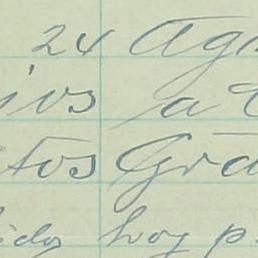 24 Ag
ios a
tos Gra
idos hoy p.